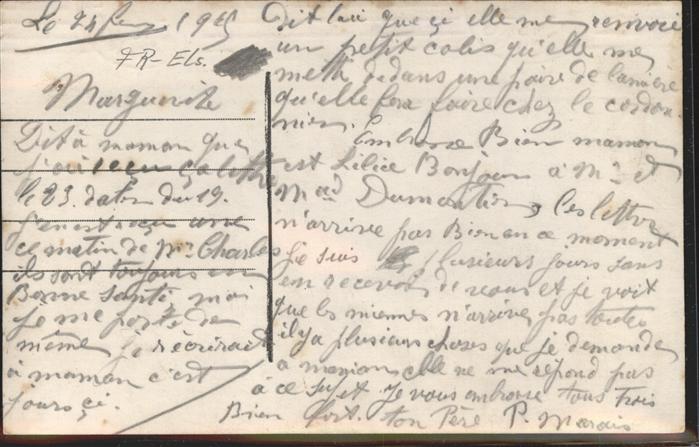 Le 24 1915
FR-Els.
Marguerite
Dit à maman que
j'ai reçu sa lettre
le 23. dater du 19.
j'en est reçu une
ce matin de Mr Charles
ils sont toujours en
Bonne santé, moi
je me porte de
même je récrirait
à maman c'est
jours çi.
Dit lui que çi elle me renvoie
un petit colis qu'elle me
mette dedans une paire de
qu'elle fera faire chez le cordon-
nier.
Embrasse Bien maman
est Bonjours à Mr et
Mad Dumontier, Les lettre
n'arrive pas Bien en ce moment
Je suis plusieurs jours sans
en recevoir de vous et je voit
que les miennes n'arrive pas toutes
il y a plusieurs choses que je demande
a maman elle ne me répond pas
à ce sujet. Je vous embrasse tous trois
Bien fort. ton Père P. Marais